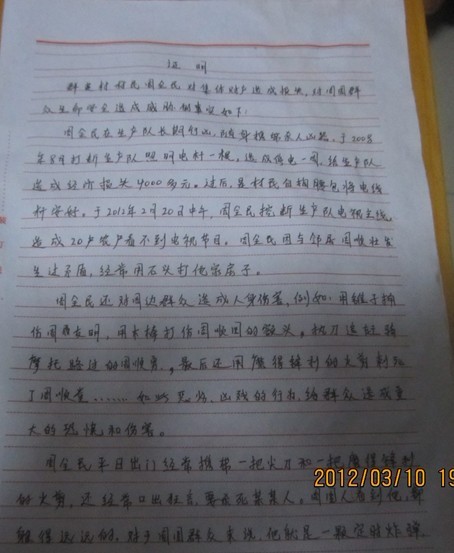 证 明
群英村村民周全民对集体财产造成损失，对周围群
众生命安全造成威胁情况如下：
周全民在生产队长期行凶，随身携带杀人凶器，于2008
年8月打断生产队照明电杆一根，造成停电一周，给生产队
造成经济损失4000多元。过后，是村民自掏腰包将电线
杆安好。于2012年2月20日中午，周全民挖断生产队电视主线，
造成20户农户看不到电视节目。周全民因与邻居周顺
生过矛盾，经常用石头打他家房子。
周全民还对周边群众造成人身伤害，例如：用锥子捅
伤周 明，用木棒打伤周顺田的额头。执刀追赶骑
摩托路过的周顺勇，最后还用磨得锋利的火剪刺
了周顺 …… 如此凶恶、凶残的行为，给群众造成重
大的恐慌和伤害。
周全民平日出门经常携带一把尖刀和一把磨得锋利
的火剪，还经常口出狂言，要杀死某某人。周围人看到他，都
躲得远远的，对于周围群众来说，他就是一颗定时炸弹
2012/03/10 19